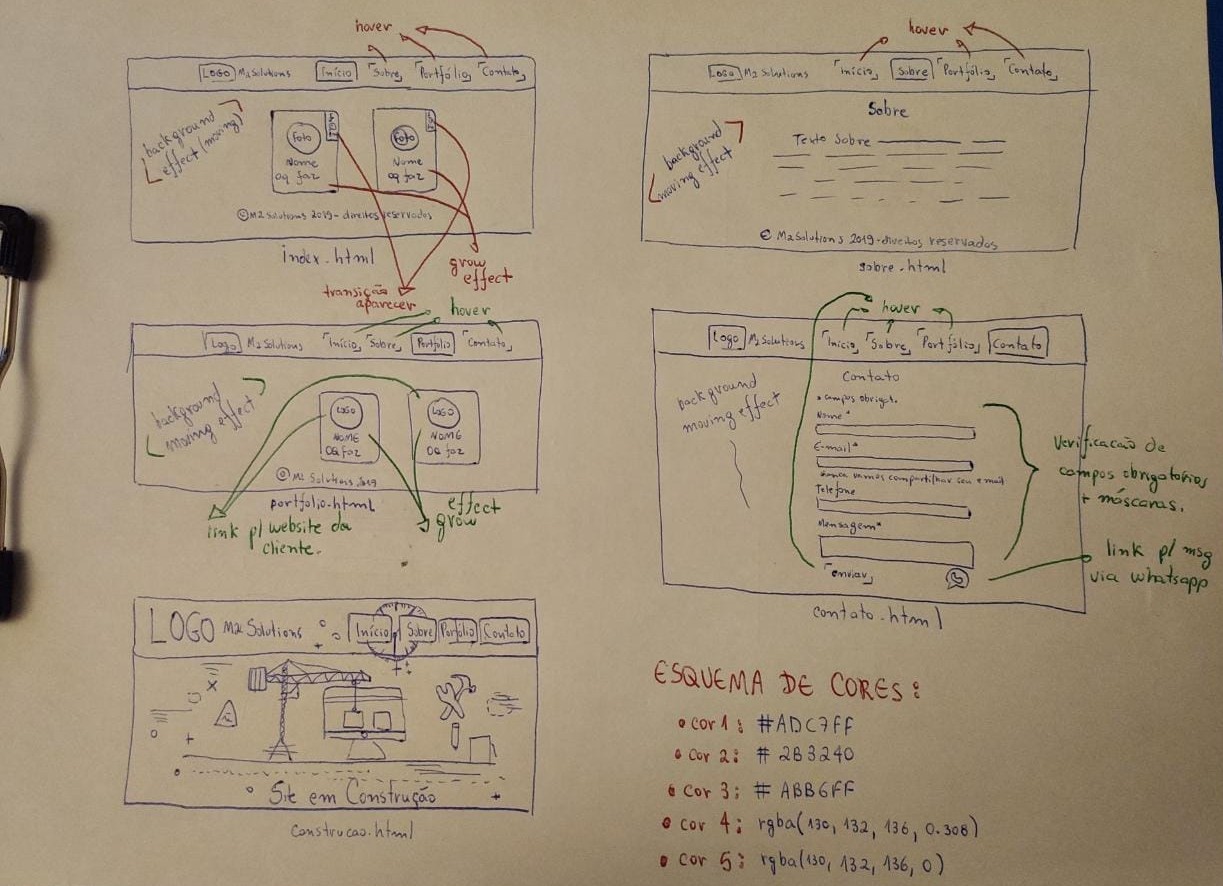 hover
LOGO M2 Solutions Início Sobre Portfólio Contato
background
effect (moving)
Foto
Nome
oq faz
Foto
Nome
oq faz
© M2 Solutions 2019 - direitos reservados
index.html
grow
effect
transição
aparecer
hover
Logo M2 Solutions Início Sobre Portfólio Contato
Sobre
background
moving effect
Texto Sobre
© M2 Solutions 2019 - direitos reservados
sobre.html
hover
Logo M2 Solutions Início Sobre Portfólio Contato
background
moving effect
LOGO
NOME
OQ faz
LOGO
NOME
OQ faz
© M2 Solutions 2019
portfolio.html
link p/ website da
cliente.
effect
grow
hover
Logo M2 Solutions Início Sobre Portfólio Contato
background
moving effect
Contato
* campos obrigat.
Nome*
E-mail*
nunca vamos compartilhar seu email
Telefone
Mensagem*
enviar
contato.html
Verificação de
campos obrigatórios
+ máscaras.
link p/ msg
via whatsapp
LOGO M2 Solutions Início Sobre Portfólio Contato
Site em Construção
construcao.html
ESQUEMA DE CORES:
• cor 1: #ADC7FF
• cor 2: # 2B3240
• cor 3: # ABB6FF
• cor 4: rgba(130, 132, 136, 0.308)
• cor 5: rgba(130, 132, 136, 0)